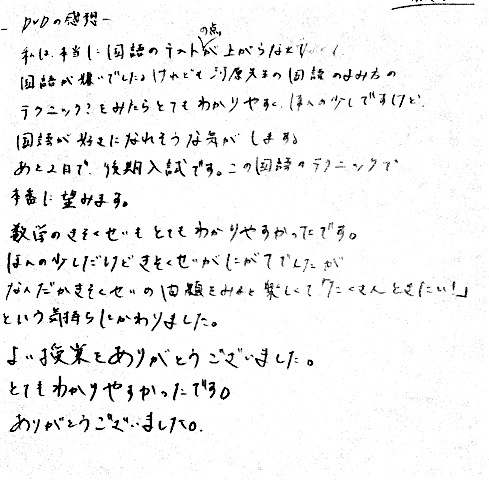 - DVDの感想 -
私は、本当に国語のテストの点が上がらなくて
国語が嫌いでしたけれども 河原先生の国語のよみ方の
テクニック?をみたらとてもわかりやすく、ほんの少しですけど、
国語が好きになれそうな気がします。
あと2日で、後期入試です。この国語のテクニックで
本番に望みます。
数学のきそくせいも とてもわかりやすかったです。
ほんの少しだけど きそくせいがにがてでしたが
なんだかきそくせいの問題をみると楽しくて「たくさんときたい!」
という気持ちにかわりました。
よい授業をありがとうございました。
とてもわかりやすかったです。
ありがとうございました。